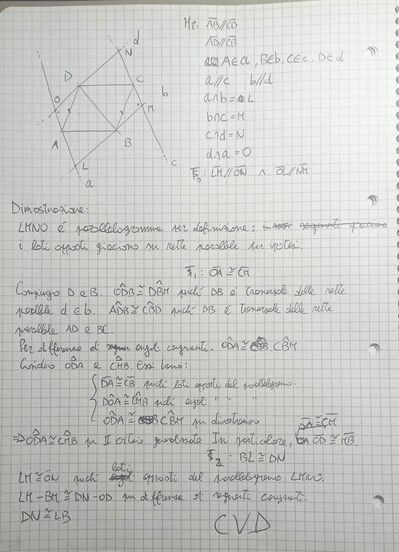 Hp: AB//CD
AD//CB
A∈a, B∈b, C∈c, D∈d
a//c b//d
a∩b=L
b∩c=M
c∩d=N
d∩a=O
LM//ON ∧ OL//NM
d
N
D
C
M
b
O
A
B
L
c
a
Dimostrazione:
LMNO è parallelogramma per definizione:
i lati opposti giacciono su rette parallele per ipotesi
1: OA≅CM
Congiungo D e B. CDB≅DBM perché DB è trasversale delle rette
parallele d e b. ADB≅CBD perché DB è trasversale delle rette
parallele AD e BC.
Per differenza di angoli congruenti, ODA≅CBM
Considero ODA e CMB. Essi hanno:
DA≅CB perché lati opposti del parallelogramma.
DOA≅CMB perché angoli " " "
ODA≅CBM per dimostrazione
⇒ODA≅CMB per II criterio generalizzato. In particolare, OA≅CM OD≅MB.
2: BL≅DN
LM≅ON perché lati opposti del parallelogramma LMNO.
LM-BM≅DN-OD per differenza di segmenti congruenti.
DN≅LB
CVD